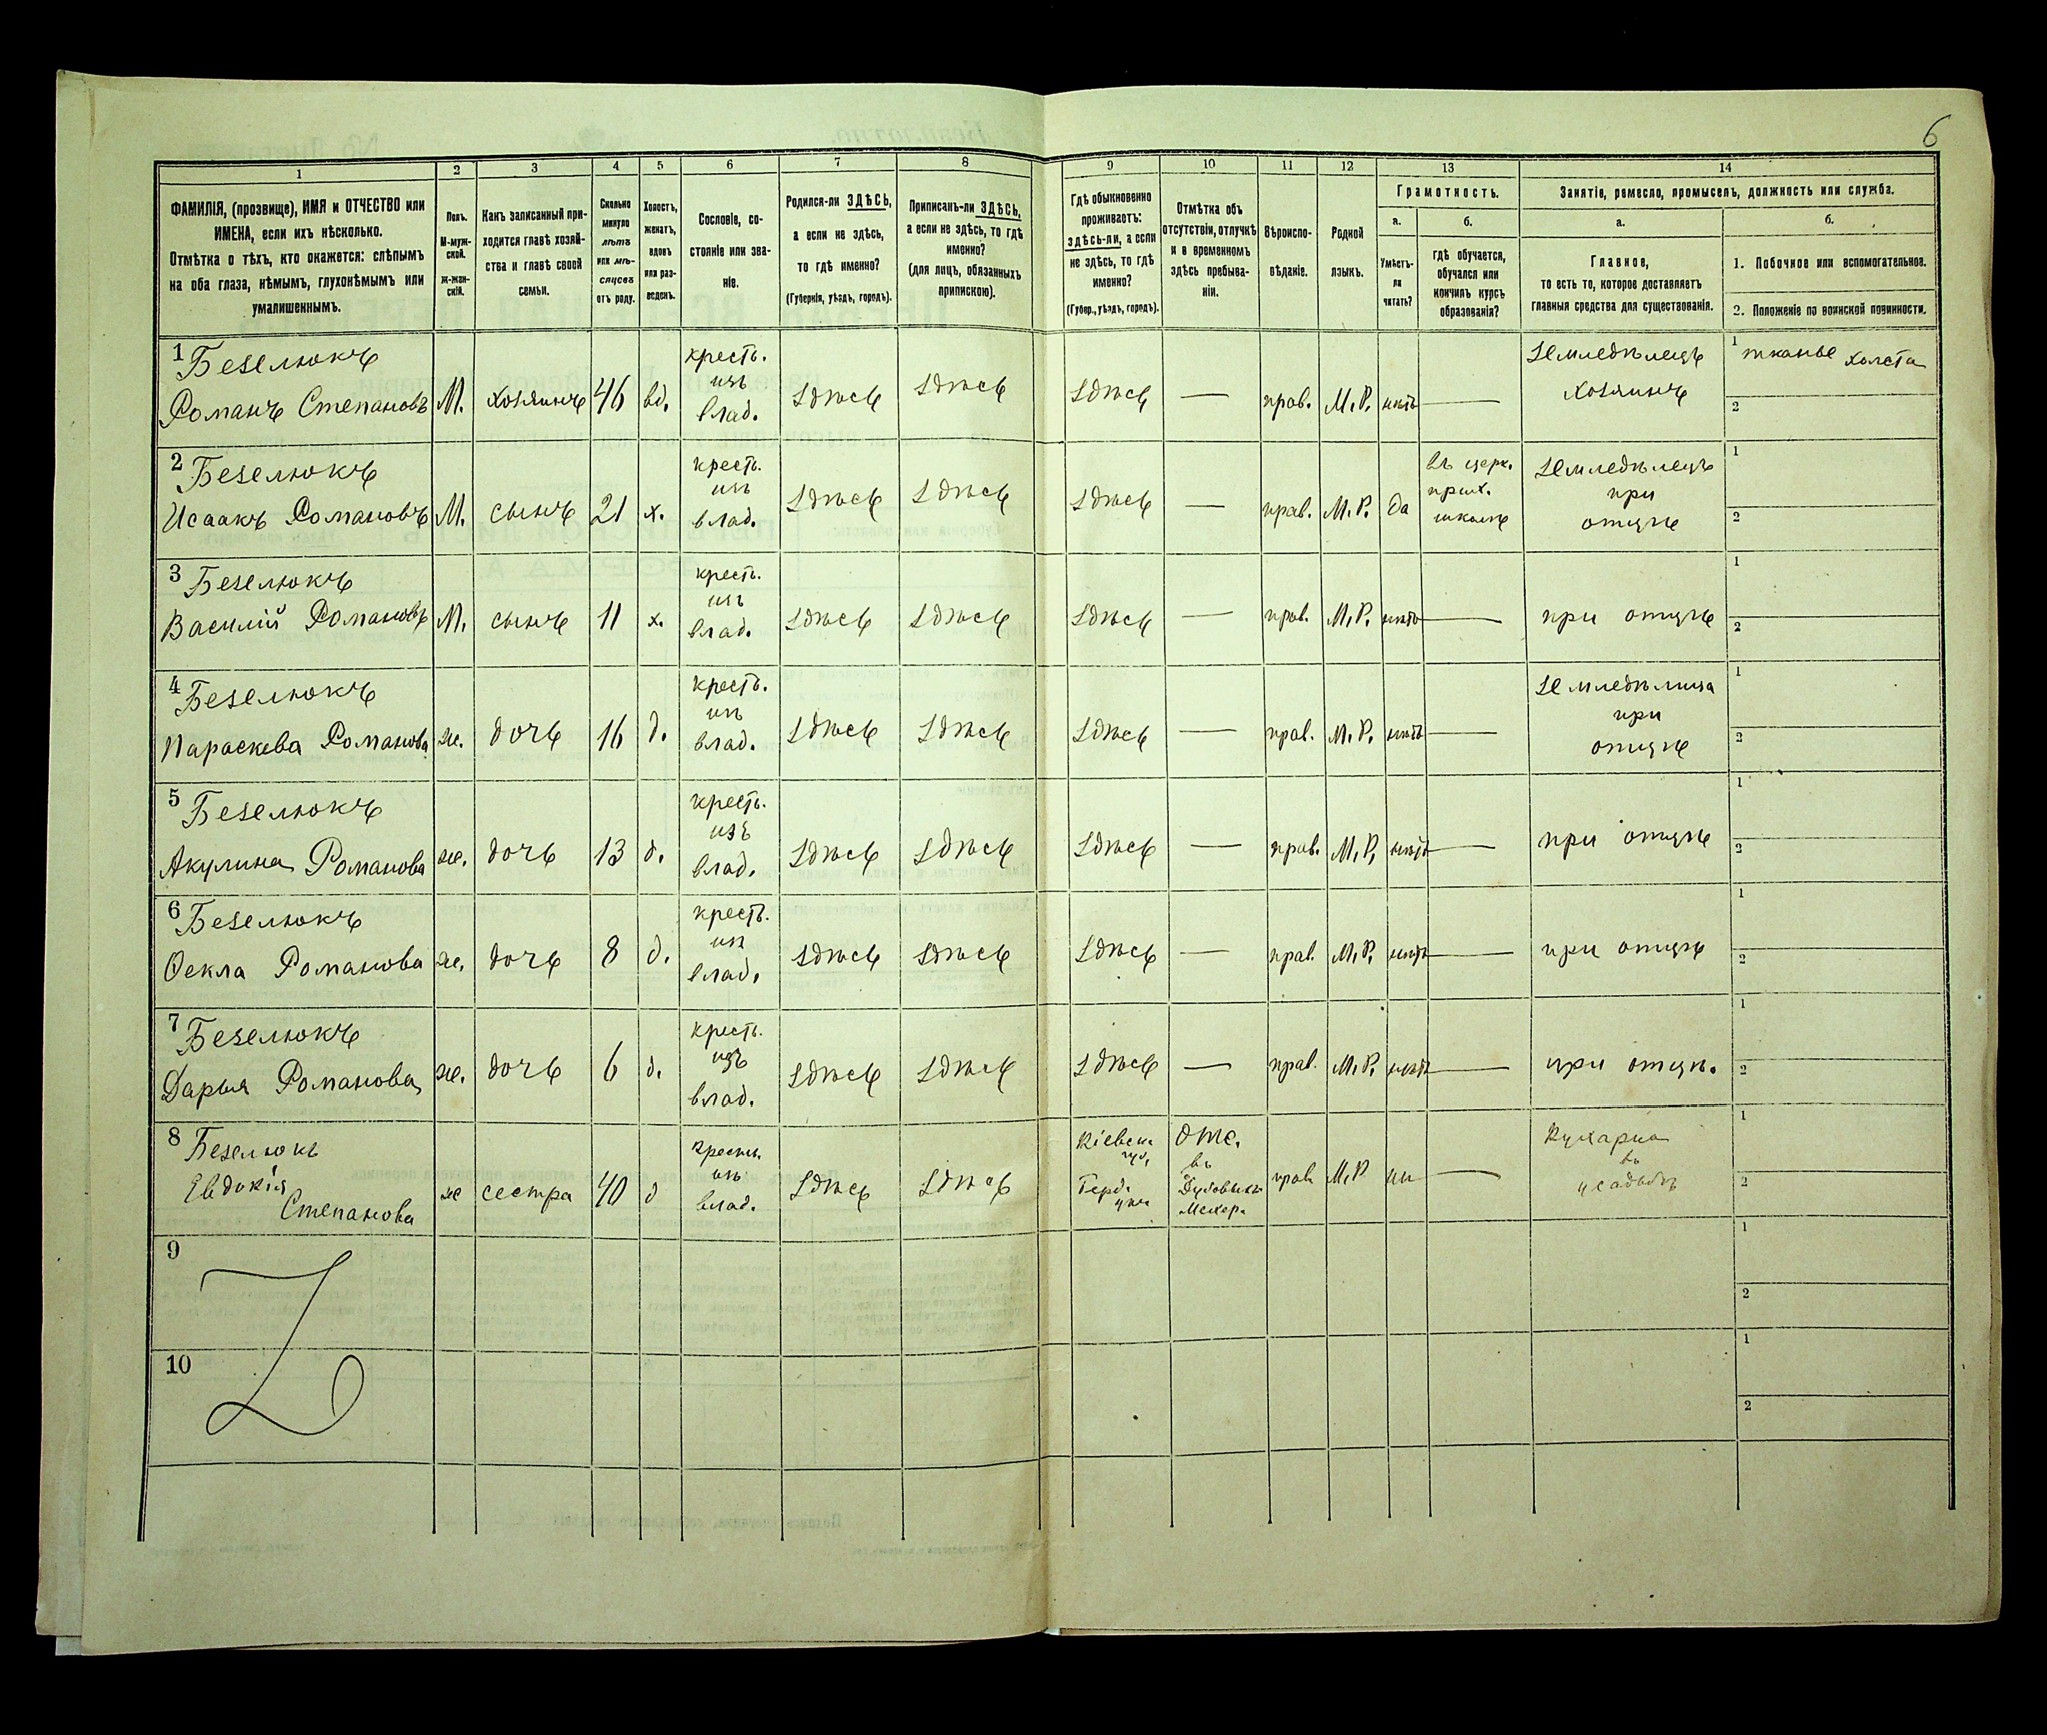 6
1
2
3
4
5
6
7
8
9
10
11
12
13
14
ФАМИЛІЯ, (прозвище), ИМЯ и ОТЧЕСТВО или
ИМЕНА, если ихъ нѣсколько.
Отмѣтка о тѣхъ, кто окажется: слѣпымъ
на оба глаза, нѣмымъ, глухонѣмымъ или
умалишеннымъ.
Полъ.
М-муж-
ской.
ж-жен-
скій.
Какъ записанный при-
ходится главѣ хозяй-
ства и главѣ своей
семьи.
Сколько
минуло
лѣтъ
или мѣ-
сяцевъ
отъ роду.
Холостъ,
женатъ,
вдовъ
или раз-
веденъ.
Сословіе, со-
стояніе или зва-
ніе.
Родился-ли ЗДѢСЬ,
а если не здѣсь,
то гдѣ именно?
(Губернія, уѣздъ, городъ).
Приписанъ-ли ЗДѢСЬ,
а если не здѣсь, то гдѣ
именно?
(для лицъ, обязанныхъ
припискою).
Гдѣ обыкновенно
проживаетъ:
здѣсь-ли, а если
не здѣсь, то гдѣ
именно?
(Губер., уѣздъ, городъ).
Отмѣтка объ
отсутствіи, отлучкѣ
и о временномъ
здѣсь пребыва-
ніи.
Вѣроиспо-
вѣданіе.
Родной
языкъ.
Грамотность.
а.
Умѣетъ-
ли
читать?
б.
гдѣ обучается,
обучался или
кончилъ курсъ
образованія?
Занятіе, ремесло, промыселъ, должность или служба.
а.
Главное,
то есть то, которое доставляетъ
главныя средства для существованія.
б.
1. Побочное или вспомогательное.
2. Положеніе по воинской повинности.
1 Безелюкъ
Романъ Степановъ
М.
хозяинъ
46
вд.
крестъ.
изъ
влад.
здѣсь
здѣсь
здѣсь
—
прав.
М.Р.
нѣтъ
—
земледѣлецъ
хозяинъ
1 тканье холста
2
2 Безелюкъ
Исаакъ Романовъ
М.
сынъ
21
х.
крестъ.
изъ
влад.
здѣсь
здѣсь
здѣсь
—
прав.
М.Р.
да
въ церк.
прих.
школѣ
земледѣлецъ
при
отцѣ
1
2
3 Безелюкъ
Василій Романовъ
М.
сынъ
11
х.
крестъ.
изъ
влад.
здѣсь
здѣсь
здѣсь
—
прав.
М.Р.
нѣтъ
—
при отцѣ
1
2
4 Безелюкъ
Параскева Романова
ж.
дочь
16
д.
крестъ.
изъ
влад.
здѣсь
здѣсь
здѣсь
—
прав.
М.Р.
нѣтъ
—
при
отцѣ
1
2
5 Безелюкъ
Акулина Романова
ж.
дочь
13
д.
крестъ.
изъ
влад.
здѣсь
здѣсь
здѣсь
—
прав.
М.Р.
нѣтъ
—
при отцѣ
1
2
6 Безелюкъ
Ѳекла Романова
ж.
дочь
8
д.
крестъ.
изъ
влад.
здѣсь
здѣсь
здѣсь
—
прав.
М.Р.
нѣтъ
—
при отцѣ
1
2
7 Безелюкъ
Дарья Романова
ж.
дочь
6
д.
крестъ.
изъ
влад.
здѣсь
здѣсь
здѣсь
—
прав.
М.Р.
нѣтъ
—
при отцѣ.
1
2
8 Безелюкъ
Евдокія
Степанова
ж
сестра
40
д
крестъ.
изъ
влад.
здѣсь
здѣсь
Кіевск.
губ.
Берд.
въ
прав
М.Р
—
Кухарка
въ
усадьбѣ
1
2
9
1
2
10
1
2